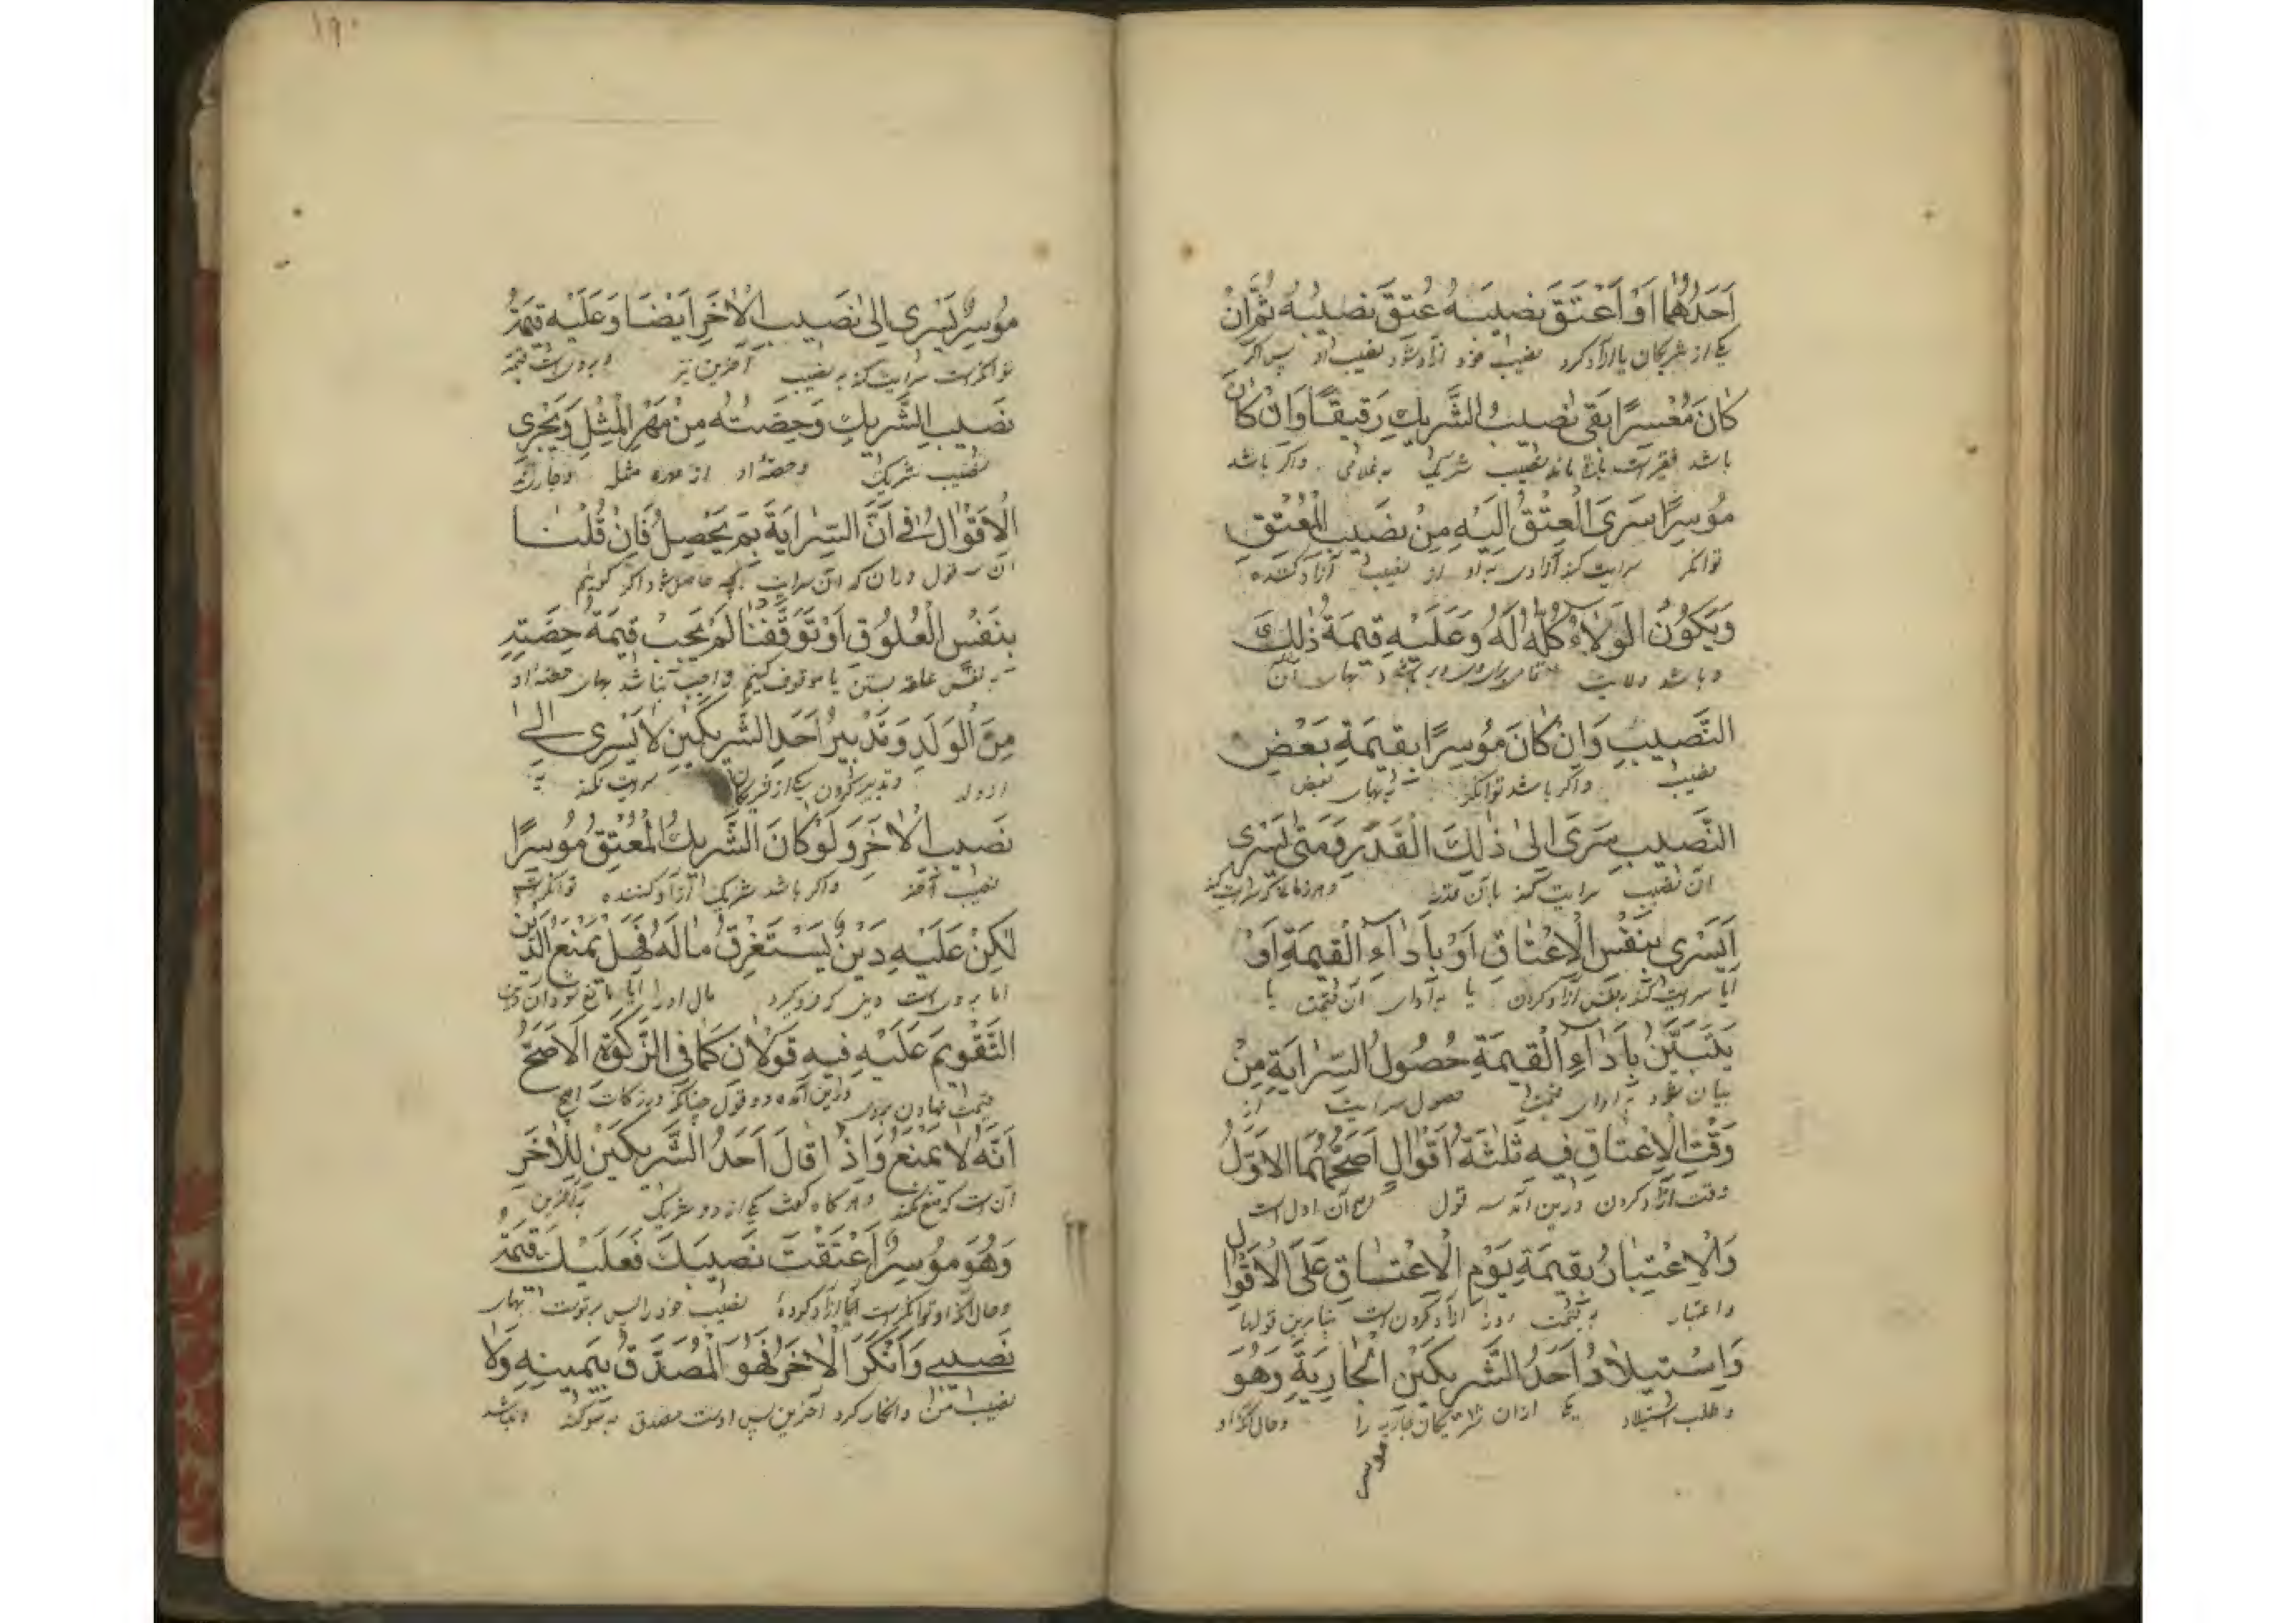 اَحَدُهُمَا اَوْ اَعْتَقَ نَصِيبَهُ عُتِقَ نَصِيبُهُ ثُمَّ اِنْ
یکی از شریکان یا ازاد کرد نصیب خود ازاد شود نصیب او پس اگر
كَانَ مُعْسِرًا بَقِیَ نَصِيبُ الشَّرِيكِ رَقِيقًا وَاِنْ كَانَ
باشد فقیر است باقی ماند نصیب شریک به غلامی واگر باشد
مُوسِرًا سَرَى الْعِتْقُ اِلَيْهِ مِنْ نَصِيبِ الْمُعْتِقِ
توانگر سرایت کند آزادی به او از نصیب آزاد کننده
وَيَكُونُ الْوَلَاءُ كُلُّهُ لَهُ وَعَلَيْهِ قِيمَةُ ذٰلِكَ
وباشد ولایت بهای آن
النَّصِيبِ وَاِنْ كَانَ مُوسِرًا بِقِيمَةِ بَعْضِ
نصیب واگر باشد توانگر به بهای بعض
النَّصِيبِ سَرَى اِلٰى ذٰلِكَ الْقَدَرِ وَمَتٰى يَسْرِی
ان نصیب سرایت کند بآن قدر
اَيَسْرِی بِنَفْسِ الْاِعْتَاقِ اَوْ بِاَدَآءِ الْقِيمَةِ اَوْ
آیا سرایت کند بنفس آزاد کردن یا به ادای آن قیمت یا
يَتَبَيَّنُ بِاَدَآءِ الْقِيمَةِ حُصُولُ السِّرَايَةِ مِنْ
بیان شود به ادای قیمت حصول سرایت از
وَقْتِ الْاِعْتَاقِ فِيهِ ثَلٰثَةُ اَقْوَالٍ اَصَحُّهُمَا الْاَوَّلُ
وقت آزاد کردن درین آمده سه قول اصح آن اول است
وَالْاِعْتِبَارُ بِقِيمَةِ يَوْمِ الْاِعْتَاقِ عَلَى الْاَقْوَالِ
واعتبار به قیمت روز آزاد کردن است بنابرین قولها
وَاِسْتِيلَادُ اَحَدِ الشَّرِيكَيْنِ الْجَارِيَةَ وَهُوَ
وطلب استیلاد یکی ازان شریکان جاریه را وحال آنکه او
موسر
۱۹۰
مُوسِرٌ يَسْرِی اِلٰى نَصِيبِ الْاٰخَرِ اَيْضًا وَعَلَيْهِ قِيمَةُ
توانگر است سرایت کند به نصیب آخرین نیز و بروی است قیمة
نَصِيبِ الشَّرِيكِ وَحِصَّتُهُ مِنْ مَهْرِ الْمِثْلِ وَيَجْرِی
نصیب شریک وحصهٔ او از مهر مثل
الْاَقْوَالُ فِی اَنَّ السِّرَايَةَ بِمَ يَحْصِلُ فَاِنْ قُلْنَا
آن سه قول دران که آن سرایت بچه حاصل شود اگر گوییم
بِنَفْسِ الْعُلُوقِ اَوْ تَوَقَّفْنَا لَمْ يَجِبْ قِيمَةُ حِصَّتِهِ
به نفس علقه بستن یا موقوف کنیم واجب نباشد بهای حصهٔ او
مِنَ الْوَلَدِ وَتَدْبِيرُ اَحَدِ الشَّرِيكَيْنِ لَا يَسْرِی اِلٰى
از ولد وتدبیر کردن یکی از شریکان سرایت نکند به
نَصِيبِ الْاٰخَرِ وَلَوْ كَانَ الشَّرِيكُ الْمُعْتِقُ مُوسِرًا
نصیب آخر واگر باشد شریک آزاد کننده توانگر است
لٰكِنْ عَلَيْهِ دَيْنٌ يَسْتَغْرِقُ مَالَهُ فَهَلْ يَمْنَعُ الدَّيْنُ
اما بروی است دینی که فرو گیرد مال او را آیا مانع شود آن دین
التَّقْوِيمَ عَلَيْهِ فِيهِ قَوْلَانِ كَمَا فِی الزَّكٰوةِ الْاَصَحُّ
قیمت نهادن بروی درین آمده دو قول چنانکه در زکات اصح
اَنَّهُ لَا يَمْنَعُ وَاِذَا قَالَ اَحَدُ الشَّرِيكَيْنِ لِلْاٰخَرِ
آن است که منع نکند وهرگاه گفت یکی از دو شریک به آخرین
وَهُوَ مُوسِرٌ اَعْتَقْتَ نَصِيبَكَ فَعَلَيْكَ قِيمَةُ
وحال آنکه او توانگر است آیا آزاد کردهٔ نصیب خود را پس بر تو است بهای
نَصِيبِی وَاَنْكَرَ الْاٰخَرُ فَهُوَ الْمُصَدَّقُ بِيَمِينِهِ وَلَا
نصیب من وانکار کرد آخرین پس اوست مصدق به سوگند